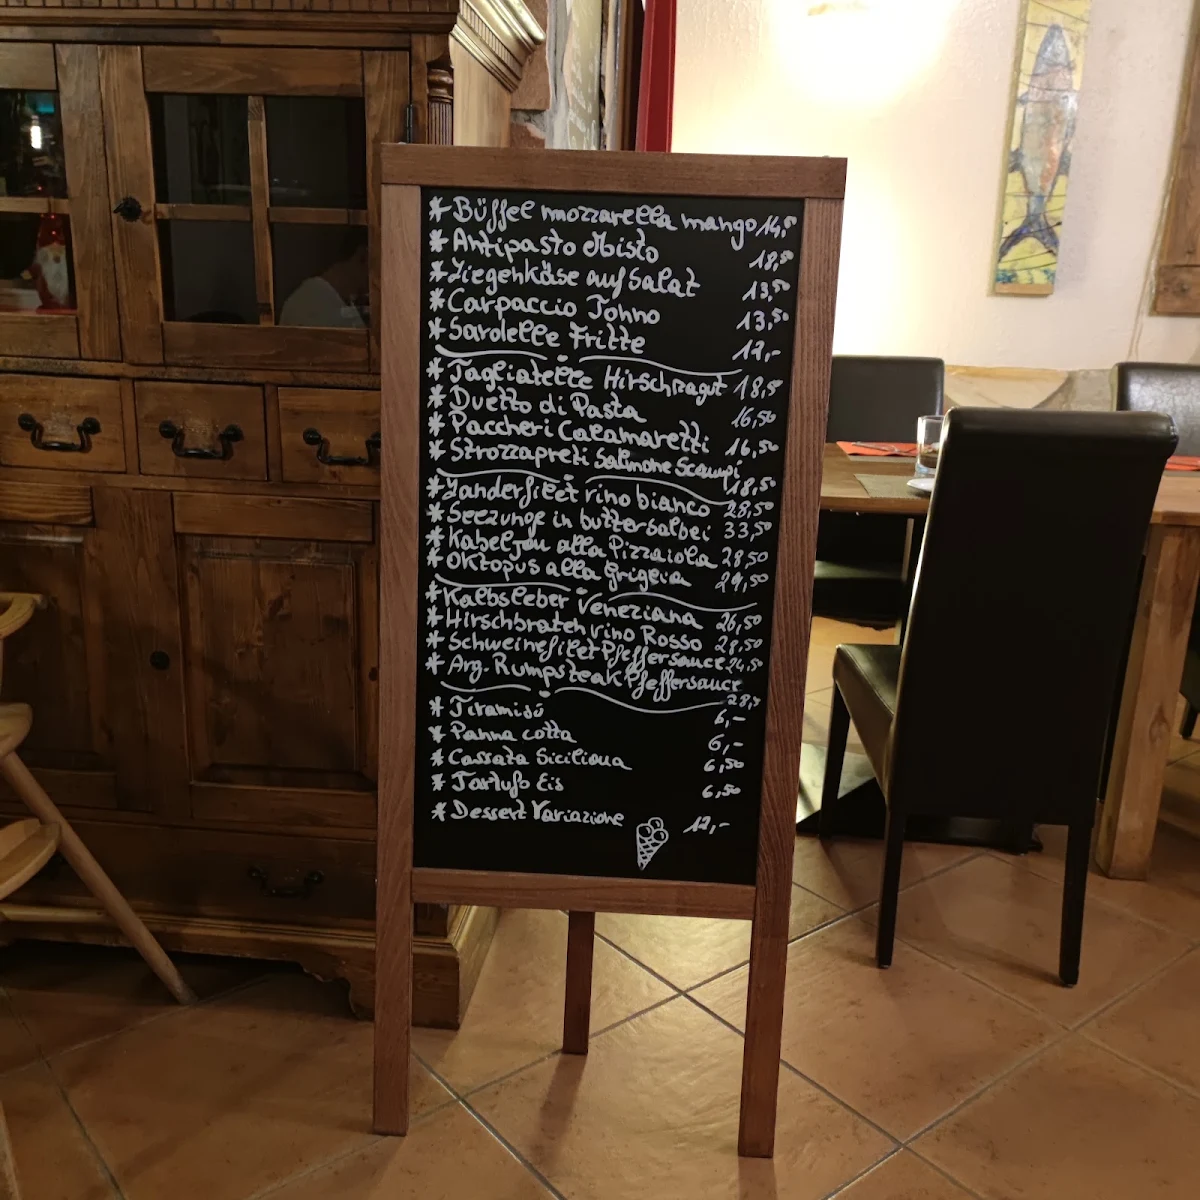 * Büffel mozzarella mango 14,50
* Antipasto Misto 18,50
* Ziegenkäse auf Salat 13,50
* Carpaccio Tohno 13,50
* Sardelle Fritte 12,-
* Tagliatelle Hirschragut 18,50
* Duetto di Pasta 16,50
* Paccheri Calamaretti 16,50
* Strozzapreti Salmone Scampi
18,50
* Zanderfilet vino bianco 28,50
* Seezunge in buttersalbei 33,50
* Kabeljau alla Pizzaiola 28,50
* Oktopus alla Griglia 29,50
* Kalbsleber Veneziana 26,50
* Hirschbraten vino Rosso 28,50
* Schweinefilet Pfeffersauce 24,50
* Arg. Rumpsteak Pfeffersauce
28,50
* Tiramisú 6,-
* Panna cotta 6,-
* Cassata Siciliana 6,50
* Tartufo Eis 6,50
* Dessert Variazione 12,-